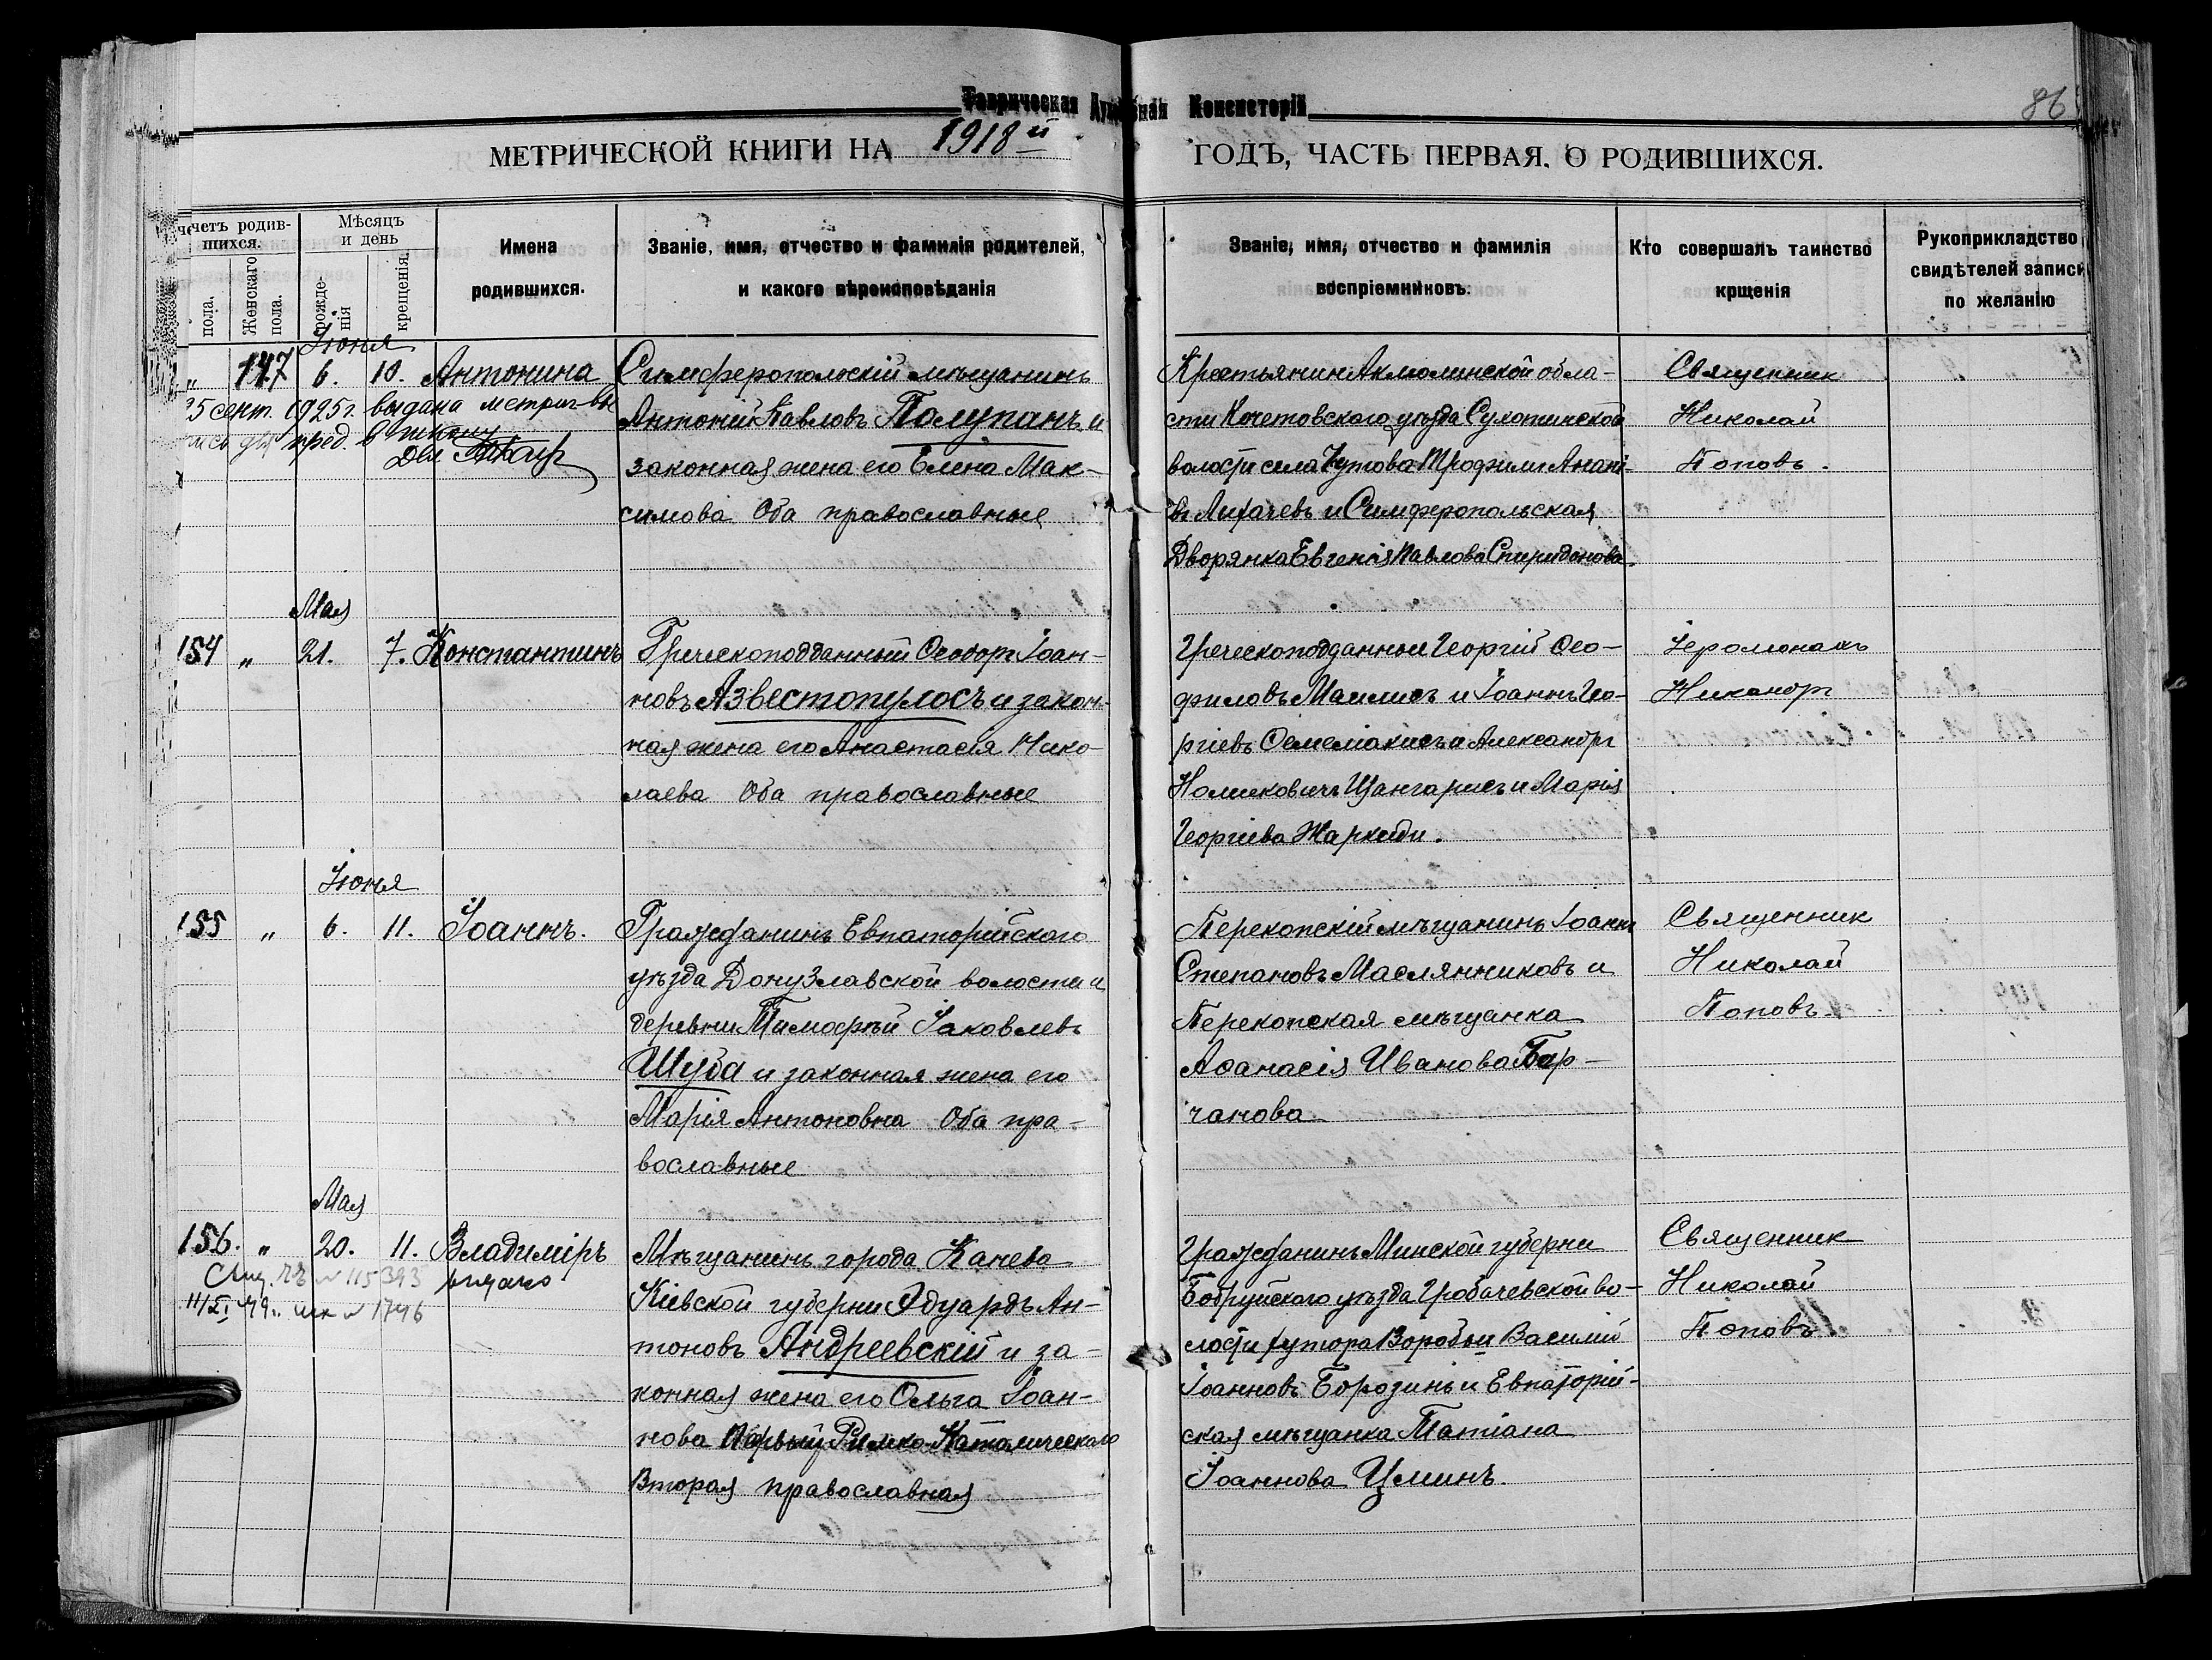 Таврическая Духовная Консисторія
86
МЕТРИЧЕСКОЙ КНИГИ НА 1918й ГОДЪ, ЧАСТЬ ПЕРВАЯ. О РОДИВШИХСЯ.
счетъ родив-
шихся.
пола.
Женскаго
пола.
Мѣсяцъ
и день
рожде-
нія
крещенія
Имена
родившихся.
Званіе, имя, отчество и фамилія родителей,
и какого вѣроисповѣданія
Званіе, имя, отчество и фамилія
воспріемниковъ.
Кто совершалъ таинство
крщенія
Рукоприкладство
свидѣтелей записи
по желанію
Іюня
„ 147 6. 10. Антонина
25 сент. 1925 г. выдана метрич
Симферопольскій мѣщанинъ
Антоній Павловъ Полупанъ и
законная жена его Елена Мак-
симова Оба православные
Крестьянин Акмолинской обла-
сти Кочетовского уѣзда Сухотинской
волости села Чутова Трофим Анані-
евъ Лихачевъ и Симферопольская
Дворянка Евгенія Павлова Спиридонова.
Священник
Николай
Поповъ.
Мая
154 „ 21. 7. Константинъ
Греческоподданный Ѳеодоръ Іоан-
новъ Азвестопулосъ и закон-
ная жена его Анастасія Нико-
лаева Оба православные
Греческоподданные Георгій Ѳео-
филовъ Маилисъ и Іоаннъ Гео-
ргіевъ и Александръ
Цангарисъ и Марія
Георгіева Жаркеиди.
Іеромонахъ
Никаноръ
Іюня
155 „ 6. 11. Іоаннъ.
Гражданинъ Евпаторійского
уѣзда Донузлавской волости и
деревни Тимофѣй Іаковлевъ
Шуба и законная жена его
Марія Антоновна Оба пра-
вославные
Перекопскій мѣщанинъ Іоаннъ
Степановъ Маслянниковъ и
Перекопская мѣщанка
Аѳанасія Иванова Бар-
чанова
Священник
Николай
Поповъ.
Мая
156. „ 20. 11. Владиміръ
№ 115393 выдано
№ 1746
Мѣщанинъ города Канева
Кіевской губерни Эдуардъ Ан-
тоновъ Андреевскій и за-
конная жена его Ольга Іоан-
нова Первый Римско-Католическаго
Вторая православная
Гражданинъ Минской губерни
Бобруйского уѣзда Гробачевской во-
лости хутора Воробьи Василий
Іоанновъ Бородинъ и Евпаторій-
ская мѣщанка Татіана
Іоаннова Цминъ.
Священник
Николай
Поповъ